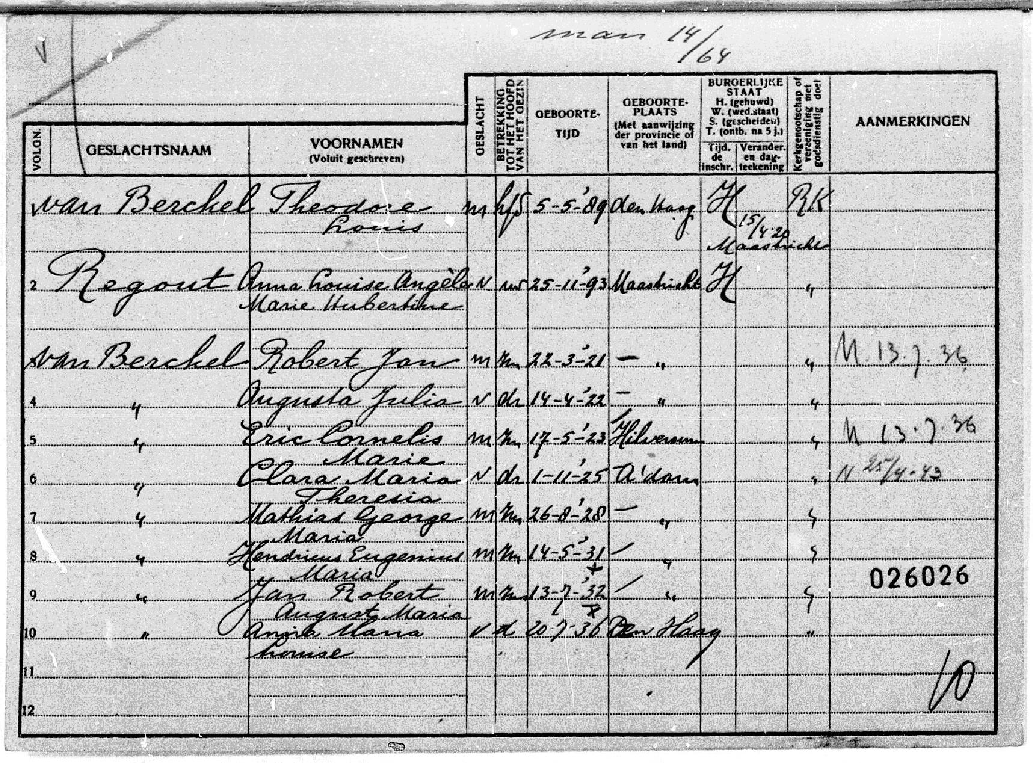 V
man 14/64
VOLGN.
GESLACHTSNAAM
VOORNAMEN
(Voluit geschreven)
GESLACHT
BETREKKING TOT HET HOOFD VAN HET GEZIN
GEBOORTE-
TIJD
GEBOORTE-
PLAATS
(Met aanwijzing
der provincie of
van het land)
BURGERLIJKE
STAAT
H. (gehuwd)
W. (wed.staat)
S. (gescheiden)
T. (ontb. na 5 j.)
Tijd.
de
inschr.
Verander.
en dag-
teekening
Kerkgenootschap of vereeniging met godsdienstig doel
AANMERKINGEN
van Berchel Theodore m hfd 5-5-'89 den Haag H RK
Louis 15/4-20
Maastricht
2 Regout Anna Louise Angèle v 25-11-'93 Maastricht H "
Marie Hubertine
van Berchel Robert Jan m zn 22-3-'21 — " " N. 13.7.36
4 " Augusta Julia v dr 14-4-'22 — " "
5 " Eric Cornelis m zn 17-5-'23 Hilversum " N 13.7.36
Marie
6 " Clara Maria v dr 1-11-'25 A'dam " N 25/4-43
Theresia
7 " Mathias George m zn 26-8-'28 — " "
Maria
8 " Hendricus Eugenius m zn 14-5-'31 " "
Maria
9 " Jan Robert m zn 13-7-'32 " "
August Maria
026026
10 " Maria v d 20-7-'36 Den Haag "
Louise
11
12
10